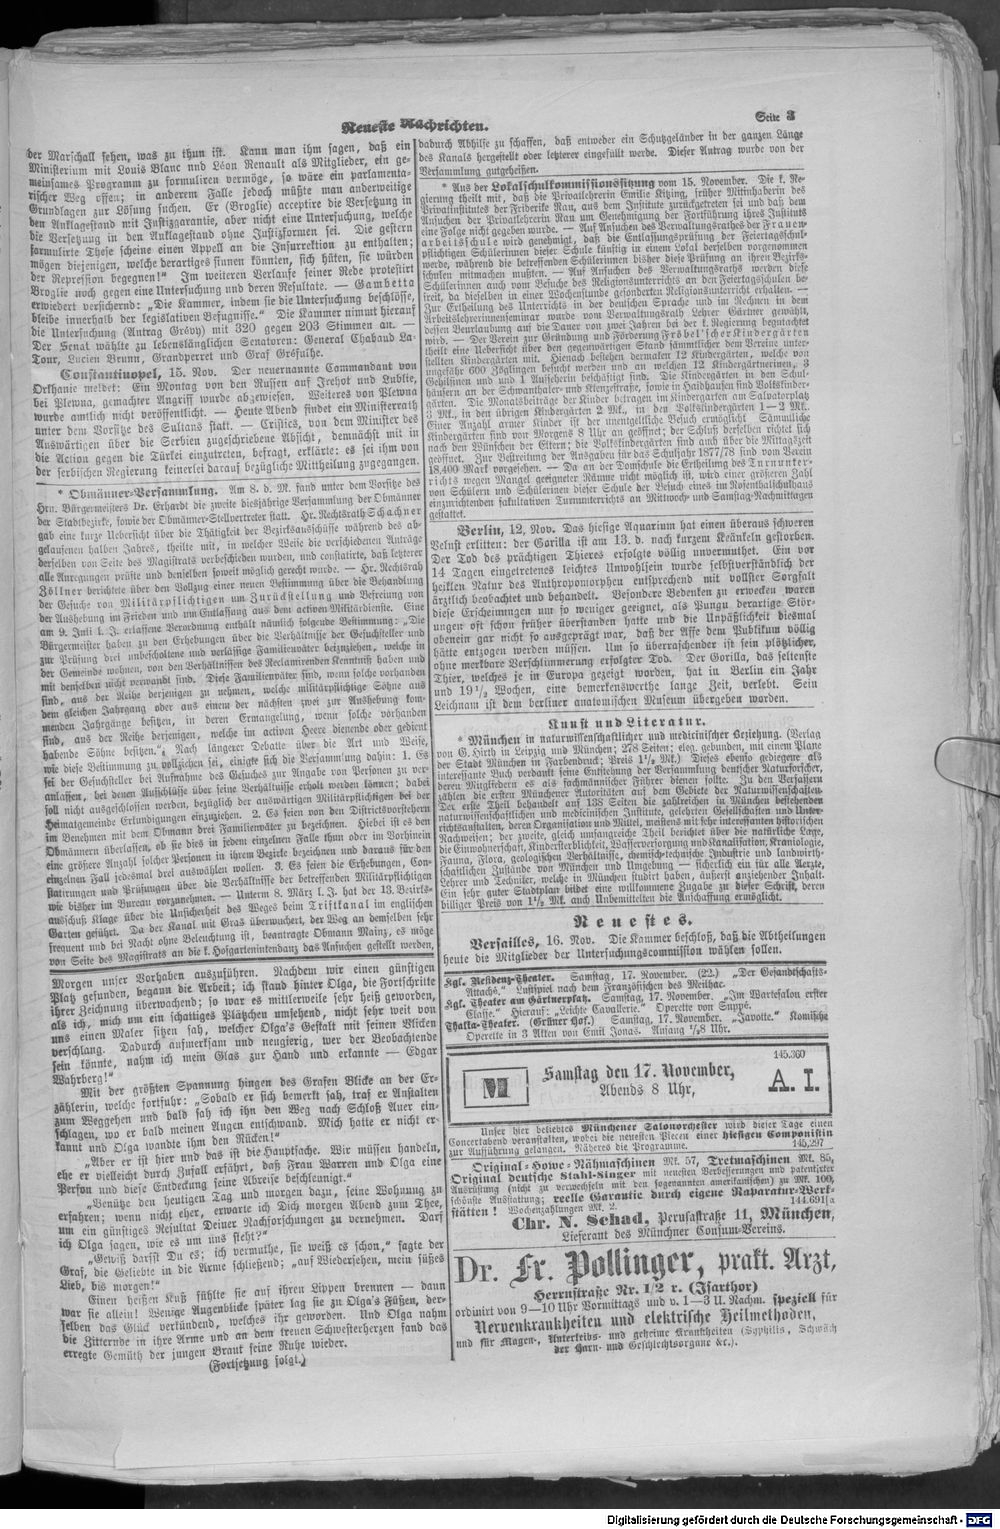 Neueste Nachrichten.
Seite 3
der Marschall sehen, was zu thun ist. Kann man ihm sagen, daß ein
Ministerium mit Louis Blanc und Léon Renault als Mitglieder, ein ge-
meinsames Programm zu formuliren vermöge, so wäre ein parlamenta-
rischer Weg offen; in anderem Falle jedoch müßte man anderweitige
Grundlagen zur Lösung suchen. Er (Broglie) acceptire die Versetzung in
den Anklagestand mit Justizgarantie, aber nicht eine Untersuchung, welche
die Versetzung in den Anklagestand ohne Justizformen sei. Die gestern
formulirte These scheine einen Appell an die Insurrektion zu enthalten;
mögen diejenigen, welche derartiges sinnen könnten, sich hüten, sie würden
der Repression begegnen!“ Im weiteren Verlaufe seiner Rede protestirt
Broglie noch gegen eine Untersuchung und deren Resultate. — Gambetta
erwiedert versichernd: „Die Kammer, indem sie die Untersuchung beschlösse,
bleibe innerhalb der legislativen Befugnisse.“ Die Kammer nimmt hierauf
die Untersuchung (Antrag Grévy) mit 320 gegen 203 Stimmen an. —
Der Senat wählte zu lebenslänglichen Senatoren: General Chabaud La-
Tour, Lucien Brunn, Grandperret und Graf Gréfulhe.
Constantinopel, 15. Nov. Der neuernannte Commandant von
Orkhanie meldet: Ein Montag von den Russen auf Jrehot und Lublie,
bei Plewna, gemachter Angriff wurde abgewiesen. Weiteres von Plewna
wurde amtlich nicht veröffentlicht. — Heute Abend findet ein Ministerrath
unter dem Vorsitze des Sultans statt. — Cristics, von dem Minister des
Auswärtigen über die Serbien zugeschriebene Absicht, demnächst mit in
die Action gegen die Türkei einzutreten, befragt, erklärte: es sei ihm von
der serbischen Regierung keinerlei darauf bezügliche Mittheilung zugegangen.
* Obmänner-Versammlung. Am 8. d. M. fand unter dem Vorsitze des
Hrn. Bürgermeisters Dr. Erhardt die zweite diesjährige Versammlung der Obmänner
der Stadtbezirke, sowie der Obmänner-Stellvertreter statt. Hr. Rechtsrath Schachner
gab eine kurze Uebersicht über die Thätigkeit der Bezirksausschüsse während des ab-
gelaufenen halben Jahres, theilte mit, in welcher Weise die verschiedenen Anträge
derselben von Seite des Magistrats verbeschieden wurden, und constatirte, daß letzterer
alle Anregungen prüfte und denselben soweit möglich gerecht wurde. — Hr. Rechtsrath
Zöllner berichtete über den Vollzug einer neuen Bestimmung über die Behandlung
der Gesuche von Militärpflichtigen um Zurückstellung und Befreiung von
der Aushebung im Frieden und um Entlassung aus dem activen Militärdienste. Eine
am 9. Juli l. J. erlassene Verordnung enthält nämlich folgende Bestimmung: „Die
Bürgermeister haben zu den Erhebungen über die Verhältnisse der Gesuchsteller und
zur Prüfung drei unbescholtene und verlässige Familienväter beizuziehen, welche in
der Gemeinde wohnen, von den Verhältnissen des Reclamirenden Kenntniß haben und
mit denselben nicht verwandt sind. Diese Familienväter sind, wenn solche vorhanden
sind, aus der Reihe derjenigen zu nehmen, welche militärpflichtige Söhne aus
dem gleichen Jahrgang oder aus einem der nächsten zwei zur Aushebung kom-
menden Jahrgänge besitzen, in deren Ermangelung, wenn solche vorhanden
sind, aus der Reihe derjenigen, welche im activen Heere dienende oder gedient
habende Söhne besitzen.“ Nach längerer Debatte über die Art und Weise,
wie diese Bestimmung zu vollziehen sei, einigte sich die Versammlung dahin: 1. Es
sei der Gesuchsteller bei Aufnahme des Gesuches zur Angabe von Personen zu ver-
anlassen, bei denen Aufschlüsse über seine Verhältnisse erholt werden können; dabei
soll nicht ausgeschlossen werden, bezüglich der auswärtigen Militärpflichtigen bei der
Heimatgemeinde Erkundigungen einzuziehen. 2. Es seien von den Districtsvorstehern
im Benehmen mit dem Obmann drei Familienväter zu bezeichnen. Hiebei ist es den
Obmännern überlassen, ob sie dies in jedem einzelnen Falle thun oder im Vorhinein
eine größere Anzahl solcher Personen in ihrem Bezirke bezeichnen und daraus für den
einzelnen Fall jedesmal drei auswählen wollen. 3. Es seien die Erhebungen, Con-
statirungen und Prüfungen über die Verhältnisse der betreffenden Militärpflichtigen
wie bisher im Bureau vorzunehmen. — Unterm 8. März l. J. hat der 13. Bezirks-
ausschuß Klage über die Unsicherheit des Weges beim Triftkanal im englischen
Garten geführt. Da der Kanal mit Gras überwuchert, der Weg an demselben sehr
frequent und bei Nacht ohne Beleuchtung ist, beantragte Obmann Mainz, es möge
von Seite des Magistrats an die k. Hofgartenintendanz das Ansuchen gestellt werden,
Morgen unser Vorhaben auszuführen. Nachdem wir einen günstigen
Platz gefunden, begann die Arbeit; ich stand hinter Olga, die Fortschritte
ihrer Zeichnung überwachend; so war es mittlerweile sehr heiß geworden,
als ich, mich um ein schattiges Plätzchen umsehend, nicht sehr weit von
uns einen Maler sitzen sah, welcher Olga's Gestalt mit seinen Blicken
verschlang. Dadurch aufmerksam und neugierig, wer der Beobachtende
sein könnte, nahm ich mein Glas zur Hand und erkannte — Edgar
Wahrberg!“
Mit der größten Spannung hingen des Grafen Blicke an der Er-
zählerin, welche fortfuhr: „Sobald er sich bemerkt sah, traf er Anstalten
zum Weggehen und bald sah ich ihn den Weg nach Schloß Auer ein-
schlagen, wo er bald meinen Augen entschwand. Mich hatte er nicht er-
kannt und Olga wandte ihm den Rücken!“
„Aber er ist hier und das ist die Hauptsache. Wir müssen handeln,
ehe er vielleicht durch Zufall erfährt, daß Frau Warren und Olga eine
Person und diese Entdeckung seine Abreise beschleunigt.“
„Benütze den heutigen Tag und morgen dazu, seine Wohnung zu
erfahren; wenn nicht eher, erwarte ich Dich morgen Abend zum Thee,
um ein günstiges Resultat Deiner Nachforschungen zu vernehmen. Darf
ich Olga sagen, wie es um uns steht?“
„Gewiß darfst Du es; ich vermuthe, sie weiß es schon,“ sagte der
Graf, die Geliebte in die Arme schließend; „auf Wiedersehen, mein süßes
Lieb, bis morgen!“
Einen heißen Kuß fühlte sie auf ihren Lippen brennen — dann
war sie allein! Wenige Augenblicke später lag sie zu Olga's Füßen, der-
selben das Glück verkündend, welches ihr geworden. Und Olga nahm
die Zitternde in ihre Arme und an dem treuen Schwesterherzen fand das
erregte Gemüth der jungen Braut seine Ruhe wieder.
(Fortsetzung folgt.)
dadurch Abhilfe zu schaffen, daß entweder ein Schutzgeländer in der ganzen Länge
des Kanals hergestellt oder letzterer eingefüllt werde. Dieser Antrag wurde von der
Versammlung gutgeheißen.
* Aus der Lokalschulkommissionssitzung vom 15. November. Die k. Re-
gierung theilt mit, daß die Privatlehrerin Emilie Kitzing, früher Mitinhaberin des
Privatinstitutes der Friderike Rau, aus dem Institute zurückgetreten sei und daß dem
Ansuchen der Privatlehrerin Rau um Genehmigung der Fortführung ihres Instituts
eine Folge nicht gegeben wurde. — Auf Ansuchen des Verwaltungsrathes der Frauen-
arbeitschule wird genehmigt, daß die Entlassungsprüfung der Feiertagsschul-
pflichtigen Schülerinnen dieser Schule künftig in einem Lokal derselben vorgenommen
werde, während die betreffenden Schülerinen bisher diese Prüfung an ihren Bezirks-
schulen mitmachen mußten. — Auf Ansuchen des Verwaltungsraths werden diese
Schülerinen auch vom Besuche des Religionsunterrichts an den Feiertagsschulen be-
freit, da dieselben in einer Wochenstunde gesonderten Religionsunterricht erhalten. —
Zur Ertheilung des Unterrichts in der deutschen Sprache und im Rechnen in dem
Arbeitslehrerinenseminar wurde vom Verwaltungsrath Lehrer Gärtner gewählt,
dessen Beurlaubung auf die Dauer von zwei Jahren bei der k. Regierung begutachtet
wird. — Der Verein zur Gründung und Förderung Fröbel'scher Kindergärten
theilt eine Uebersicht über den gegenwärtigen Stand sämmtlicher dem Vereine unter-
stellten Kindergärten mit. Hienach bestehen dermalen 12 Kindergärten, welche von
ungefähr 600 Zöglingen besucht werden und an welchen 12 Kindergärtnerinen, 3
Gehilfinen und und 1 Aufseherin beschäftigt sind. Die Kindergärten in den Schul-
häusern an der Schwanthaler- und Klenzestraße, sowie in Haidhausen sind Volkskinder-
gärten. Die Monatsbeiträge der Kinder betragen im Kindergarten am Salvatorplatz
3 Mk., in den übrigen Kindergärten 2 Mk., in den Volkskindergärten 1—2 Mk.
Einer Anzahl armer Kinder ist der unentgeltliche Besuch ermöglicht. Sämmtliche
Kindergärten sind von Morgens 8 Uhr an geöffnet; der Schluß derselben richtet sich
nach den Wünschen der Eltern; die Volkskindergärten sind auch über die Mittagszeit
geöffnet. Zur Bestreitung der Ausgaben für das Schuljahr 1877/78 sind vom Verein
18,400 Mark vorgesehen. — Da an der Domschule die Ertheilung des Turnunter-
richts wegen Mangel geeigneter Räume nicht möglich ist, wird einer größeren Zahl
von Schülern und Schülerinen dieser Schule der Besuch eines im Rosenthalschulhaus
einzurichtenden fakultativen Turnunterrichts an Mittwoch- und Samstag-Nachmittagen
gestattet.
Berlin, 12. Nov. Das hiesige Aquarium hat einen überaus schweren
Verlust erlitten: der Gorilla ist am 13. d. nach kurzem Kränkeln gestorben.
Der Tod des prächtigen Thieres erfolgte völlig unvermuthet. Ein vor
14 Tagen eingetretenes leichtes Unwohlsein wurde selbstverständlich der
heiklen Natur des Anthropomorphen entsprechend mit vollster Sorgfalt
ärztlich beobachtet und behandelt. Besondere Bedenken zu erwecken waren
diese Erscheinungen um so weniger geeignet, als Pungu derartige Stör-
ungen oft schon früher überstanden hatte und die Unpäßlichkeit diesmal
obenein gar nicht so ausgeprägt war, daß der Affe dem Publikum völlig
hätte entzogen werden müssen. Um so überraschender ist sein plötzlicher,
ohne merkbare Verschlimmerung erfolgter Tod. Der Gorilla, das seltenste
Thier, welches je in Europa gezeigt worden, hat in Berlin ein Jahr
und 19 1/2 Wochen, eine bemerkenswerthe lange Zeit, verlebt. Sein
Leichnam ist dem berliner anatomischen Museum übergeben worden.
Kunst und Literatur.
* München in naturwissenschaftlicher und medicinischer Beziehung. (Verlag
von G. Hirth in Leipzig und München; 278 Seiten; eleg. gebunden, mit einem Plane
der Stadt München in Farbendruck; Preis 1 1/2 Mk.) Dieses ebenso gediegene als
interessante Buch verdankt seine Entstehung der Versammlung deutscher Naturforscher,
deren Mitgliedern es als fachmännischer Führer dienen sollte. Zu den Verfassern
zählen die ersten Münchener Autoritäten auf dem Gebiete der Naturwissenschaften.
Der erste Theil behandelt auf 138 Seiten die zahlreichen in München bestehenden
naturwissenschaftlichen und medicinischen Institute, gelehrten Gesellschaften und Unter-
richtsanstalten, deren Organisation und Mittel, meistens mit sehr interessanten historischen
Nachweisen; der zweite, gleich umfangreiche Theil berichtet über die natürliche Lage,
die Einwohnerschaft, Kindersterblichkeit, Wasserversorgung und Kanalisation, Kraniologie,
Fauna, Flora, geologischen Verhältnisse, chemisch-technische Industrie und landwirth-
schaftlichen Zustände von München und Umgebung — sicherlich ein für alle Aerzte,
Lehrer und Techniker, welche in München studirt haben, äußerst anziehender Inhalt.
Ein sehr guter Stadtplan bildet eine willkommene Zugabe zu dieser Schrift, deren
billiger Preis von 1 1/2 Mk. auch Unbemittelten die Anschaffung ermöglicht.
Neuestes.
Versailles, 16. Nov. Die Kammer beschloß, daß die Abtheilungen
heute die Mitglieder der Untersuchungscommission wählen sollen.
Kgl. Residenz-Theater. Samstag, 17. November. (22.) „Der Gesandtschafts-
Attaché.“ Lustspiel nach dem Französischen des Meilhac.
Kgl. Theater am Gärtnerplatz. Samstag, 17. November. „Im Wartesalon erster
Classe.“ Hierauf: „Leichte Cavallerie.“ Operette von Suppé.
Thalia-Theater. (Grüner Hof.) Samstag, 17. November. „Javotte.“ Komische
Operette in 3 Akten von Emil Jonas. Anfang 1/28 Uhr.
145.360
M
Samstag den 17. November,
Abends 8 Uhr,
A. I.
Unser hier beliebtes Münchener Salonorchester wird dieser Tage einen
Concertabend veranstalten, wobei die neuesten Piecen einer hiesigen Componistin
zur Aufführung gelangen. Näheres die Programme. 145,297
Original-Howe-Nähmaschinen Mk. 57, Tretmaschinen Mk. 85,
Original deutsche Stahl-Singer mit neuesten Verbesserungen und patentirter
Ausrüstung (nicht zu verwechseln mit den sogenannten amerikanischen) zu Mk. 100,
schönste Ausstattung; reelle Garantie durch eigene Reparatur-Werk-
stätten! Wochenzahlungen Mk. 2. 144.691|a
Chr. N. Schad, Perusastraße 11, München,
Lieferant des Münchner Consum-Vereins.
Dr. Fr. Pollinger, prakt. Arzt,
Herrnstraße Nr. 1/2 r. (Isarthor)
ordinirt von 9—10 Uhr Vormittags und v. 1—3 U. Nachm. speziell für
Nervenkrankheiten und elektrische Heilmethoden,
und für Magen-, Unterleibs- und geheime Krankheiten (Syphilis, Schwäch
der Harn- und Geschlechtsorgane &c.).
Digitalisierung gefördert durch die Deutsche Forschungsgemeinschaft - DFG